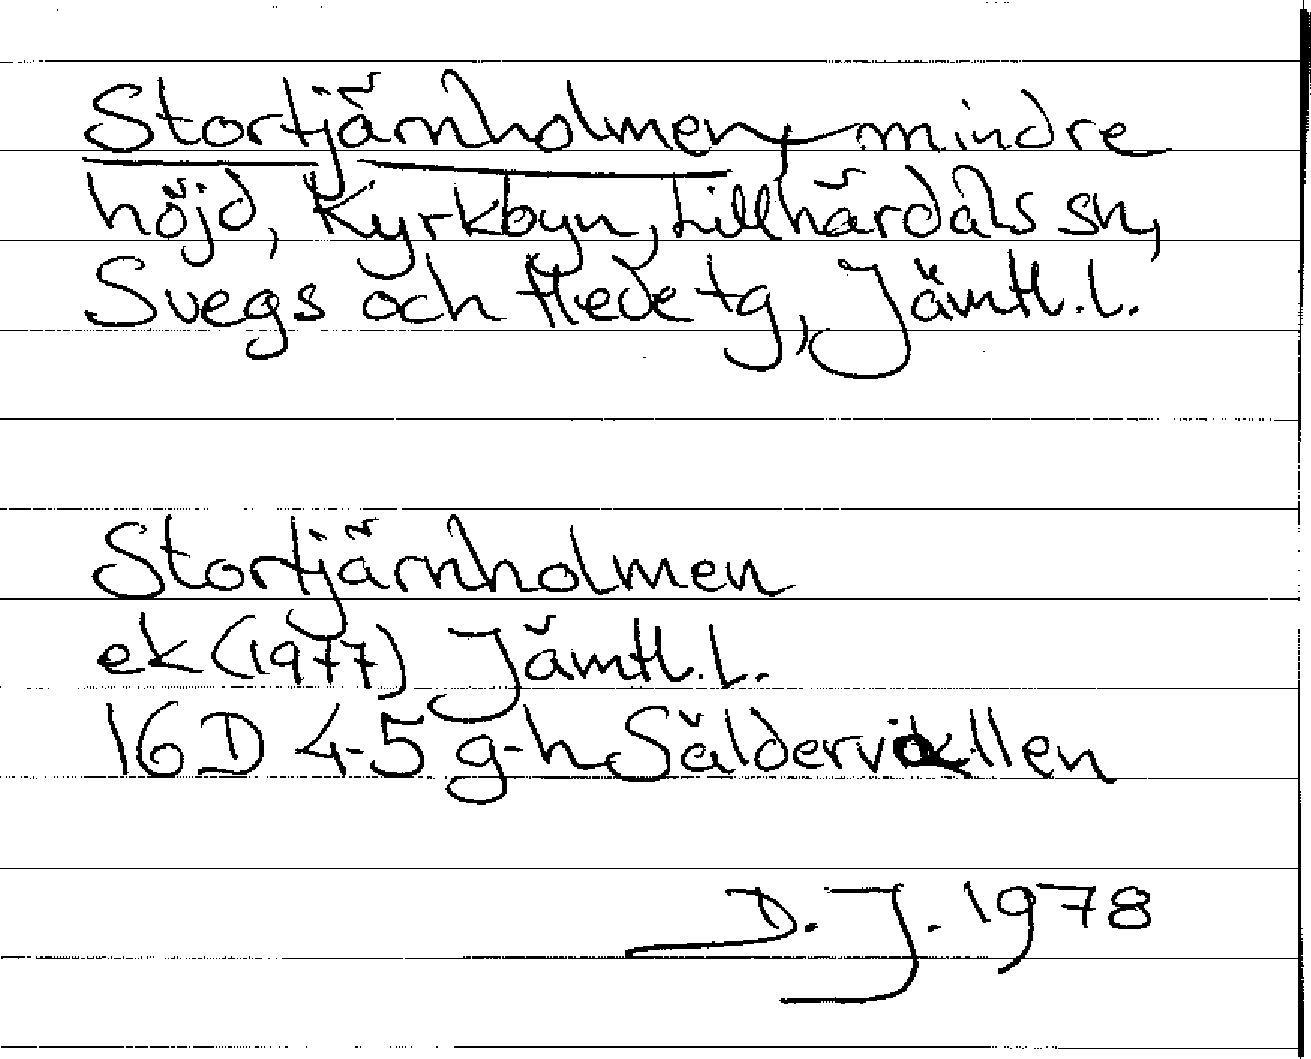 Stortjärnholmen, mindre
höjd, Kyrkbyn, Lillhärdals sn,
Svegs och Hede tg, Jämtl.l.
Stortjärnholmen
ek (1977) Jämtl.l.
16 D 4-5 g-h Säldervallen
D.J. 1978